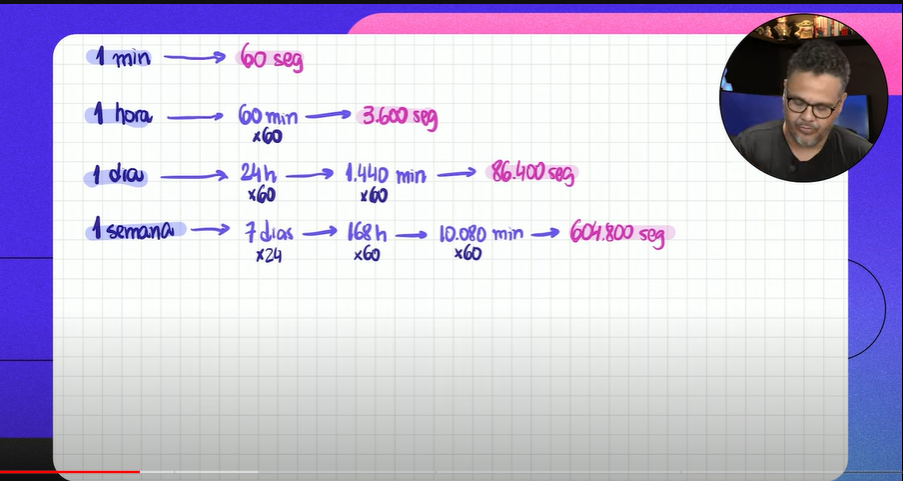 1 min → 60 seg
1 hora → 60 min → 3.600 seg
x60
1 dia → 24h → 1.440 min → 86.400 seg
x60 x60
1 semana → 7 dias → 168h → 10.080 min → 604.800 seg
x24 x60 x60